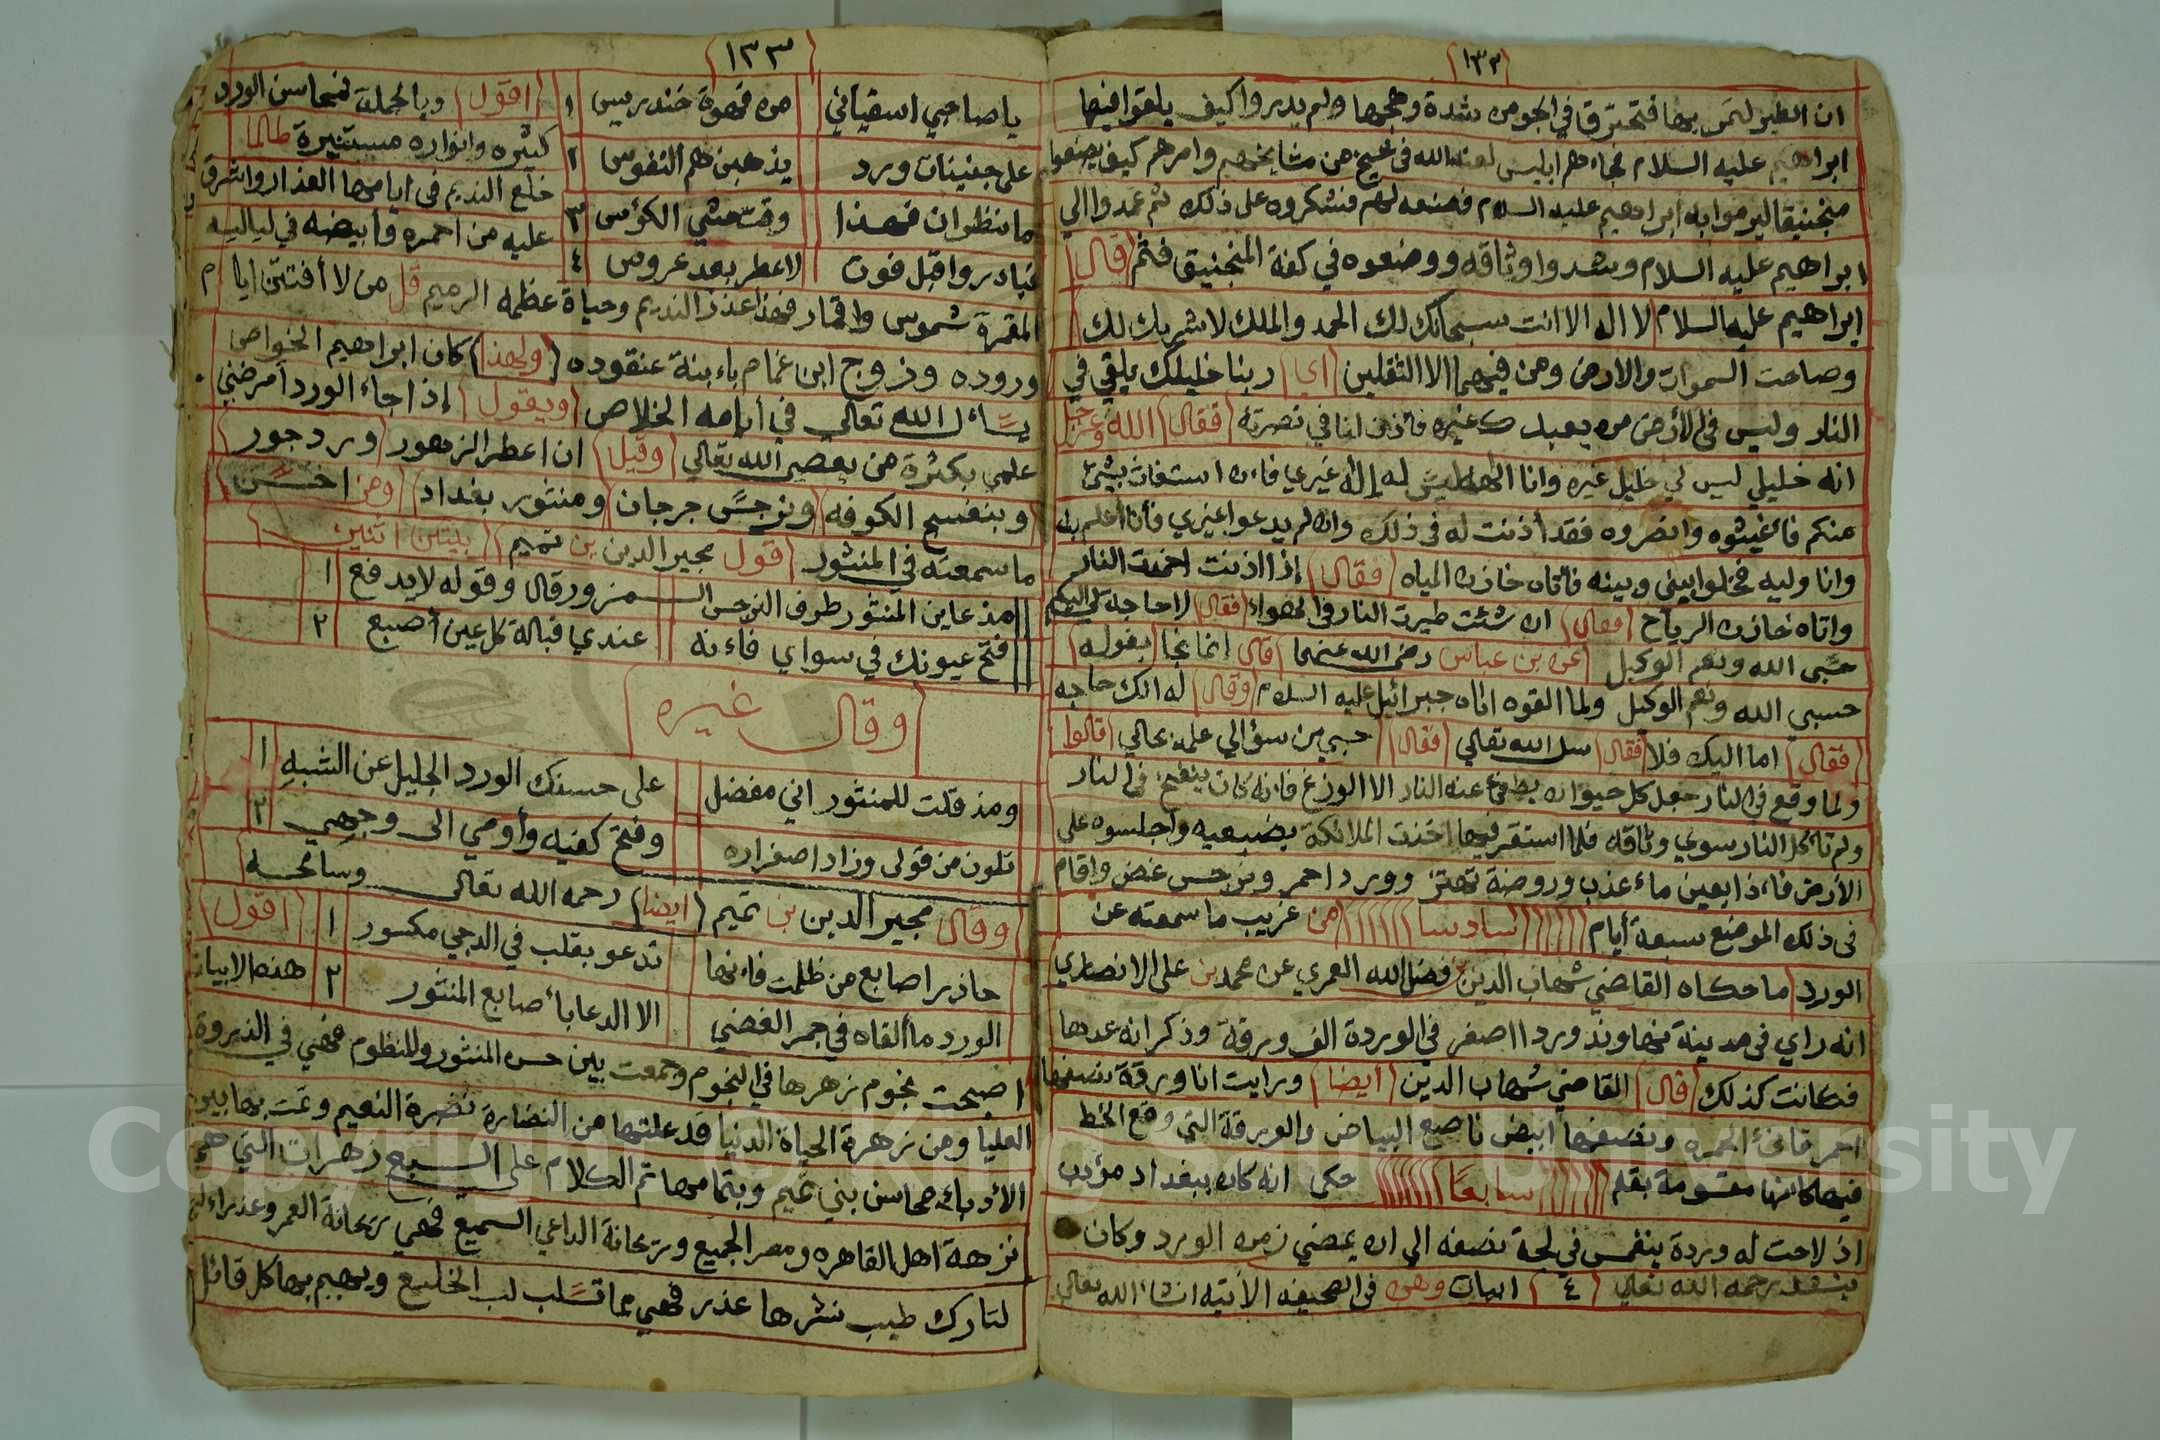 (١٣٢)
ان الطير لتمر بها فتحترق في الجو من شدة وهجها ولم يدروا كيف يلقوا فيها
ابراهيم عليه السلام فجاءهم ابليس لعنه الله في شيخ من مشايخهم وامرهم كيف يصنعوا
منجنيقا ليرموا به ابراهيم عليه السلام فصنعه لهم فشكروه على ذلك ثم عمدوا الي
ابراهيم عليه السلام وشدوا وثاقه ووضعوه في كفة المنجنيق فثم (قال
ابراهيم عليه السلام) لا اله الا انت سبحانك لك الحمد والملك لا شريك لك
وصاحت السموات والارض ومن فيهما الا الثقلين (اي) ربنا خليلك يلقي في
النار وليس في الأرض من يعبدك غيره فأذن لنا في نصرته (فقال) الله عز وجل
انه خليلي ليس لي خليل غيره وانا الهه ليس له إله غيري فاءن استغاث بشئ
منكم فأغيثوه وانصروه فقد أذنت له في ذلك وان لم يدعوا غيري فأنا أعلم به
وانا وليه فخلوا بيني وبينه فاتاه خازن المياه (فقال) إذا اذنت اخمدت النار
واتاه خازن الرياح (فقال) ان شئت طيرت النار في الهواء (فقال) لا حاجة لي اليكم
حسبي الله ونعم الوكيل (عن بن عباس رضي الله عنهما) قال انما نجا (بقوله)
حسبي الله ونعم الوكيل ولما القوه اتاه جبرائيل عليه السلام (وقال) له الك حاجه
(فقال) اما اليك فلا (فقال) سل الله تعالي (فقال) حسبي من سؤالي علمه بحالي (قالوا)
ولما وقع في النار جعل كل حيوان يطفئ عنه النار الا الوزغ فانه كان ينفخ في النار
ولم تأكل النار سوي وثاقه فلما استقر فيها اخذت الملائكة بضبعيه وأجلسوه على
الأرض فاءذا بعين ماء عذب وروضة تهتز وورد احمر ونرجس غض واقام
في ذلك الموضع سبعة أيام (سادسا) من غريب ما سمعته عن
الورد (ما حكاه القاضي شهاب الدين بن فضل الله العمري عن محمد بن على الانصاري
انه راي في مدينة نهاوند وردا اصفر في الوردة الف ورقة وذكر انه عدها
فكانت كذلك (قال) القاضي شهاب الدين (أيضا) ورايت انا ورقة نصفها
احمر قانئ الحمره ونصفها ابيض ناصع البياض والورقة التي وقع الخط
فيها كأنها مقسومة بقلم (سابعا) حكى انه كان ببغداد مؤدب
اذ لاحت له وردة ينغمس في لجة نصفه الي ان يمضي زمن الورد وكان
ينشد رحمه الله تعالي (٤) ابيات وهي في الصحيفه الأتيه انشاء الله تعالي
(١٣٣)
يا صاحبي اسقياني من قهوة خندريس ١
على جنينات ورد يذهبن هم النفوس ٢
ما تنظران فهذا وقت حثي الكؤس ٣
فبادر واقبل فوت لا عطر بعد عروس ٤
(اقول) وبالجملة فمحاسن الورد
كثيره وانواره مستنيرة طالما
خلع النديم في ايامها العذار واشرق
عليه من احمره وأبيضه في لياليه
المقمرة شموس واقمار فهذا عذر النديم وحياة عظمه الرميم قل من لا أفتتن ايام
وروده وزوج ابن غمام باءبنة عنقوده (ولهذا) كان ابراهيم الخواص
يسأل الله تعالي في أيامه الخلاص (ويقول) إذا جاء الورد أمرضني
علمي بكثرة من يعصي الله تعالي (وقيل) ان اعطر الزهور (ورد جور)
(وبنفسج الكوفه) ونرجس جرجان (ومنثور بغداد) (ومن احسن)
ما سمعته في المنثور (قول مجير الدين بن تميم) (بيتين اثنين)
مذ عاين المنثور طرف النرجس المزور قال وقوله لا يدفع ١
فتح عيونك في سواي فاءنه عندي قبالة كل عين أصبع ٢
(وقال غيره)
ومذ قلت للمنثور اني مفضل على حسنك الورد الجليل عن الشبه ١
تلون من قولى وزاد اصفراره وفتح كفيه وأومي الى وجهي ٢
(وقال مجير الدين بن تميم (ايضا) رحمه الله تعالى وسامحه
حاذر اصابع من ظلمت فاءنها تدعو بقلب في الدجي مكسور ١ (اقول)
الورد ما ألقاه في جمر الغضي الا الدعا بأصابع المنثور ٢ هذه الابيات
اصبحت نجوم زهرها في النجوم وجمعت بين حسن المنثور وللنظوم فهي في الذروة
العليا ومن زهرة الحياة الدنيا قد علتها من النضارة نضرة النعيم وتمت بها بين
الأدباء محاسن بني تميم وبتمامها تم الكلام على السبع زهرات التي هي
نزهة اهل القاهره ومصر الجميع وريحانة الداعي السميع فهي ريحانة العمر وعذراء
لتارك طيب نشرها عذر فهي مما تسلب لب الخليع ويهيم بها كل قائل
Copyright © King Saud University